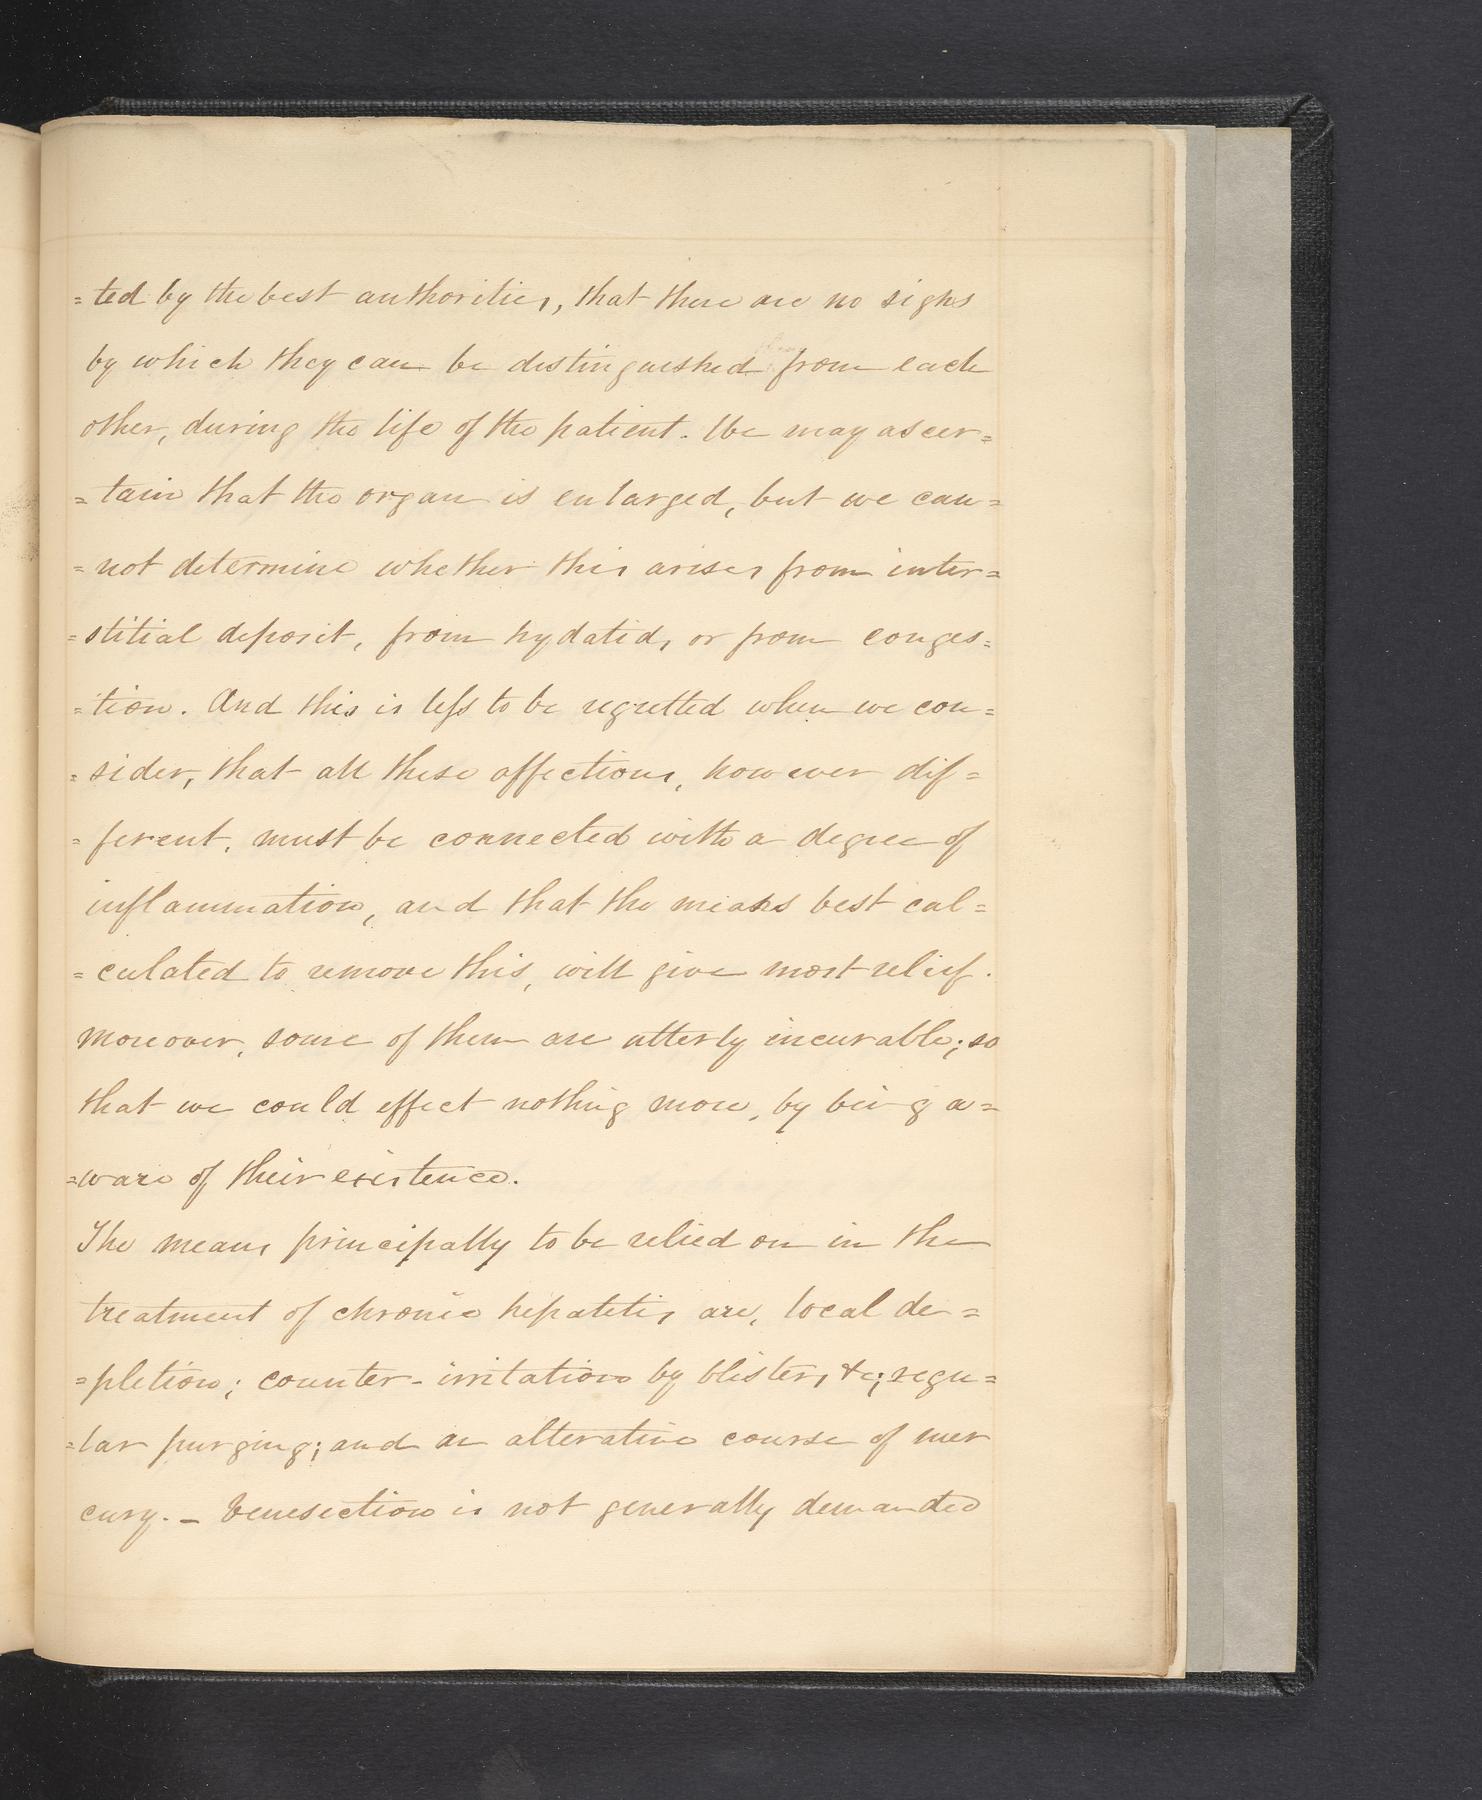 = ted by the best authorities, that there are no signs
by which they can be distinguished from each
other, during the life of the patient. We may ascer=
= tain that the organ is enlarged, but we can=
= not determine whether this arises from inter=
= stitial deposit, from hydatids, or from conges=
= tion. And this is less to be regretted when we con=
= sider, that all these affections, however dif=
= ferent, must be connected with a degree of
inflammation, and that the means best cal=
= culated to remove this, will give most relief.
Moreover, some of them are utterly incurable; so
that we could effect nothing more, by being a=
=ware of their existence.
The means principally to be relied on in the
treatment of chronic hepatitis are, local de=
=pletion; counter-irritation by blisters &c; regu=
=lar purging; and an alterative course of mer
cury. _ Venesection is not generally demanded